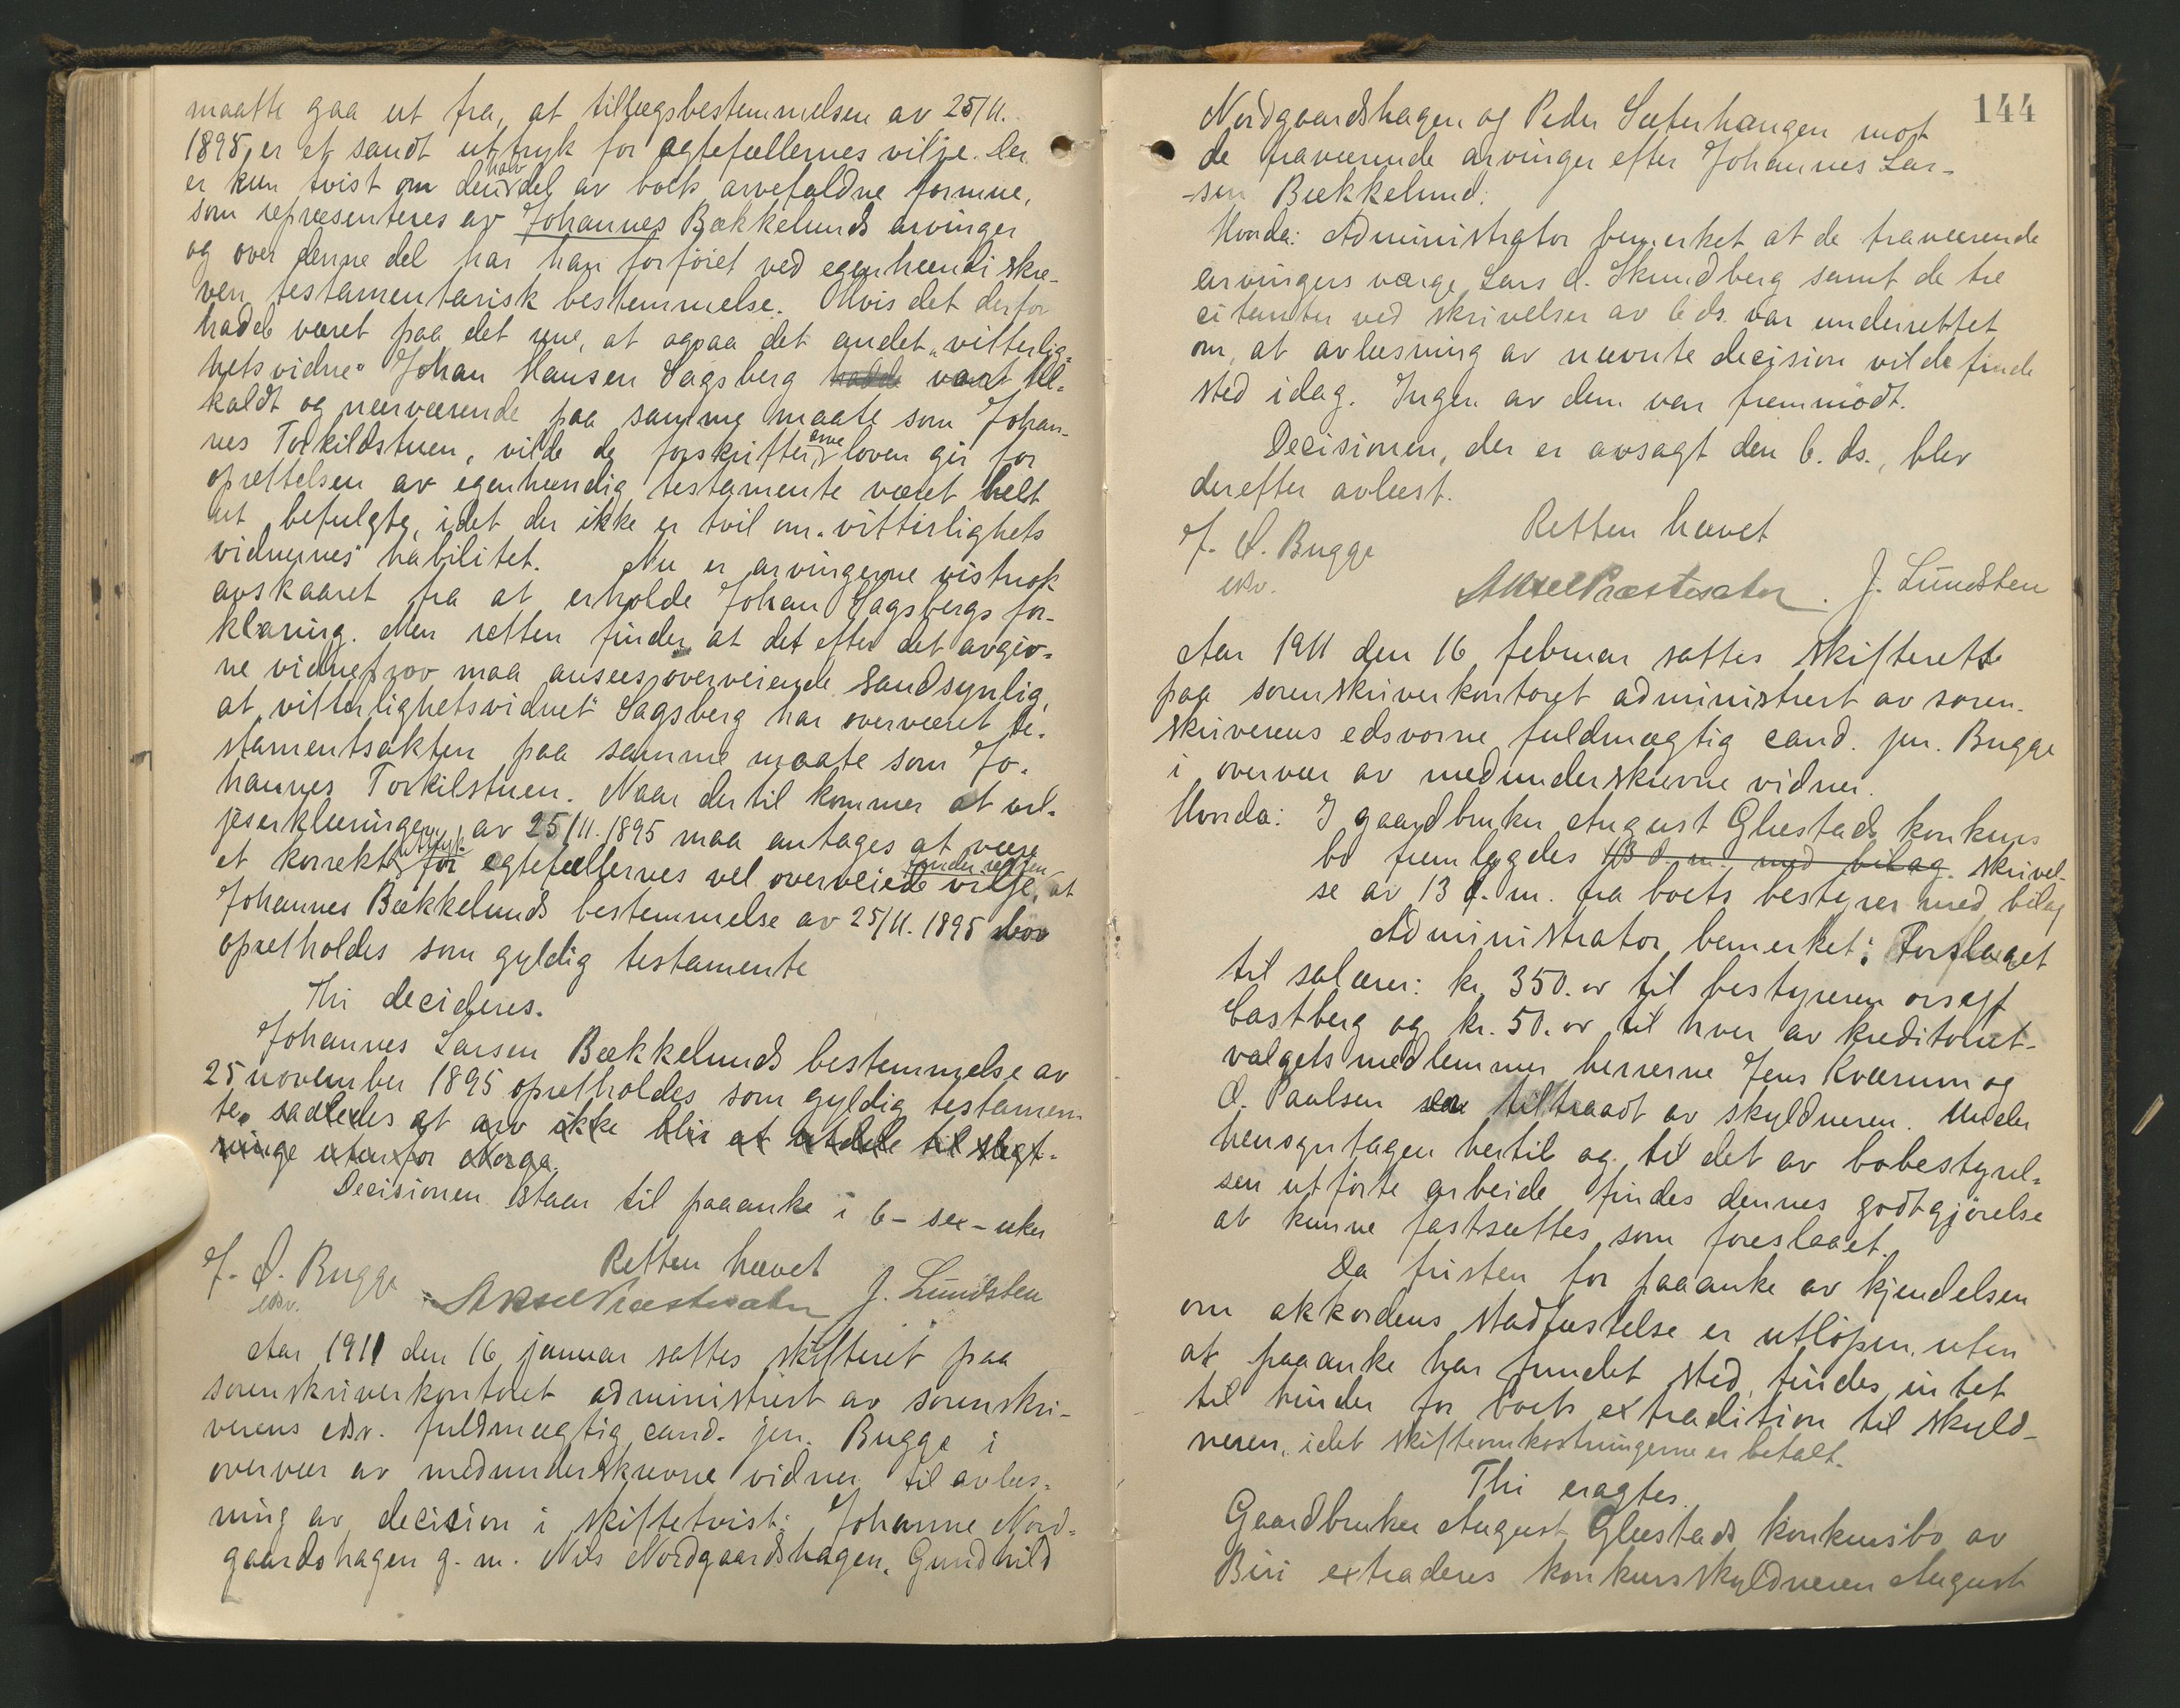 maatte gaa ut fra, at tillægsbestemmelsen av 25/11.
1895, er et sandt uttryk for egtefællernes vilje. Der
er kun tvist om den halvdel av boets arvefaldne formue,
som repræsenteres av Johannes Bækkelunds arvinger
og over denne del har han forføiet ved egenhændi skre-
ven testamentarisk bestemmelse. Hvis det derfor
hadde været paa det rene, at ogsaa det andet "vitterlig-
hetsvidne" Johan Hansen Sagsberg hadde vart til-
kaldt og nærværende paa samme maate som Johan-
nes Torkildstuen, vilde de forskrifter arveloven gir for
oprettelsen av egenhændig testamente været helt
ut befulgte, idet der ikke er tvil om "vitterlighets
vidnernes" habilitet. Nu er arvingerne vistnok
avskaaret fra at erholde Johan Sagsbergs for-
klaring. Men retten finder at det efter det avgiv-
ne vidneprov maa ansees overveiende sandsynlig,
at "vitterlighetsvidnet" Sagsberg har overværet te-
stamentsakten paa samme maate som Jo-
hannes Torkilstuen. Naar dertil kommer at vil-
jeserklæringen av 25/11. 1895 maa antages at være
et korrekt uttryk for egtefællernes vel overveiede vilje, finder retten at
Johannes Bækkelunds bestemmelse av 25/11. 1895 bør
opretholdes som gyldig testamente
Thi decideres.
Johannes Larsen Bækkelunds bestemmelse av
25 november 1895 opretholdes som gyldig testamen-
te. saaledes at arv ikke blir at utdele til slegt-
ninge utenfor Norge.
Decisionen staar til paaanke i 6 - sex - uker
Retten hævet
J. A. Bugge
edsv.
Aksel Præstesæter J. Lundsten
Aar 1911 den 16 januar sattes skifteret paa
sorenskriverkontoret administrert av sorenskri-
verens edsv. fuldmægtig cand. jur. Bugge i
overvær av medunderskrevne vidner til avlæs-
ning av decision i skiftetvist: Johanne Nord-
gaardshagen g. m. Nils Nordgaardshagen, Gundhild
144
Nordgaardshagen og Peder Sæterhaugen mot
de fraværende arvinger efter Johannes Lar-
-sen Bækkelund.
Hvorda: Administrator bemerket at de fraværende
arvingers værge Lars A. Skundberg samt de tre
citanter ved skrivelser av 6 ds. var underrettet
om, at avlæsning av nævnte decision vilde finde
sted idag. Ingen av dem var fremmødt.
Decisionen, der er avsagt den 6. ds., blev
derefter avlæst.
Retten hævet
J. A. Bugge
edsv.
Aksel Præstesæter. J. Lundsten
Aar 1911 den 16 februar sattes skifterett
paa sorenskriverkontoret administrert av soren-
skriverens edsvorne fuldmægtig cand. jur. Bugge
i overvær av medunderskrevne vidner.
Hvorda: I gaardbruker August Glæstads konkurs
bo fremlagdes 13 d. m. med bilag. skrivel-
se av 13 d. m. fra boets bestyrer med bilag
Administrator bemerket: Forslaget
til salærer: kr. 350.oo til bestyreren orsagf
Castberg og kr. 50.oo til hver av kreditorut-
valgets medlemmer herrerne Jens Kværum og
O. Paulsen er tiltraadt av skyldneren. Under
hensyntagen hertil og til det av bobestyrel-
sen utførte arbeide findes dennes godtgjørelse
at kunne fastsættes som foreslaaet.
Da fristen for paaanke av kjendelsen
om akkordens stadfæstelse er utløpen, uten
at paaanke har fundet sted, findes intet
til hinder for boets extradition til skyld-
neren, idet skifteomkostningerne er betalt.
Thi eragtes
Gaardbruker August Glæstads konkursbo av
Biri extraderes konkursskyldneren August